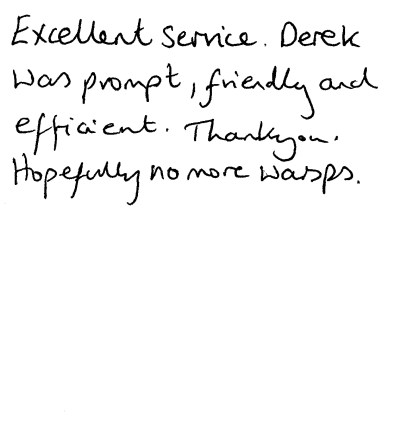 Excellent Service. Derek
was prompt, friendly and
efficient. Thankyou.
Hopefully no more wasps.